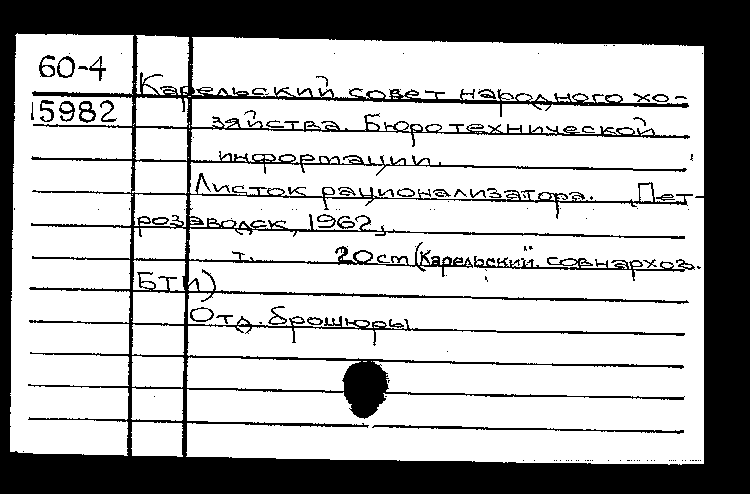 60-4
Карельский совет народного хо-
15982
зяйства. Бюро технической
информации.
Листок рационализатора. Пет-
розаводск, 1962,
т. 20 cm (Карельский совнархоз.
БТИ)
Отд. брошюры.